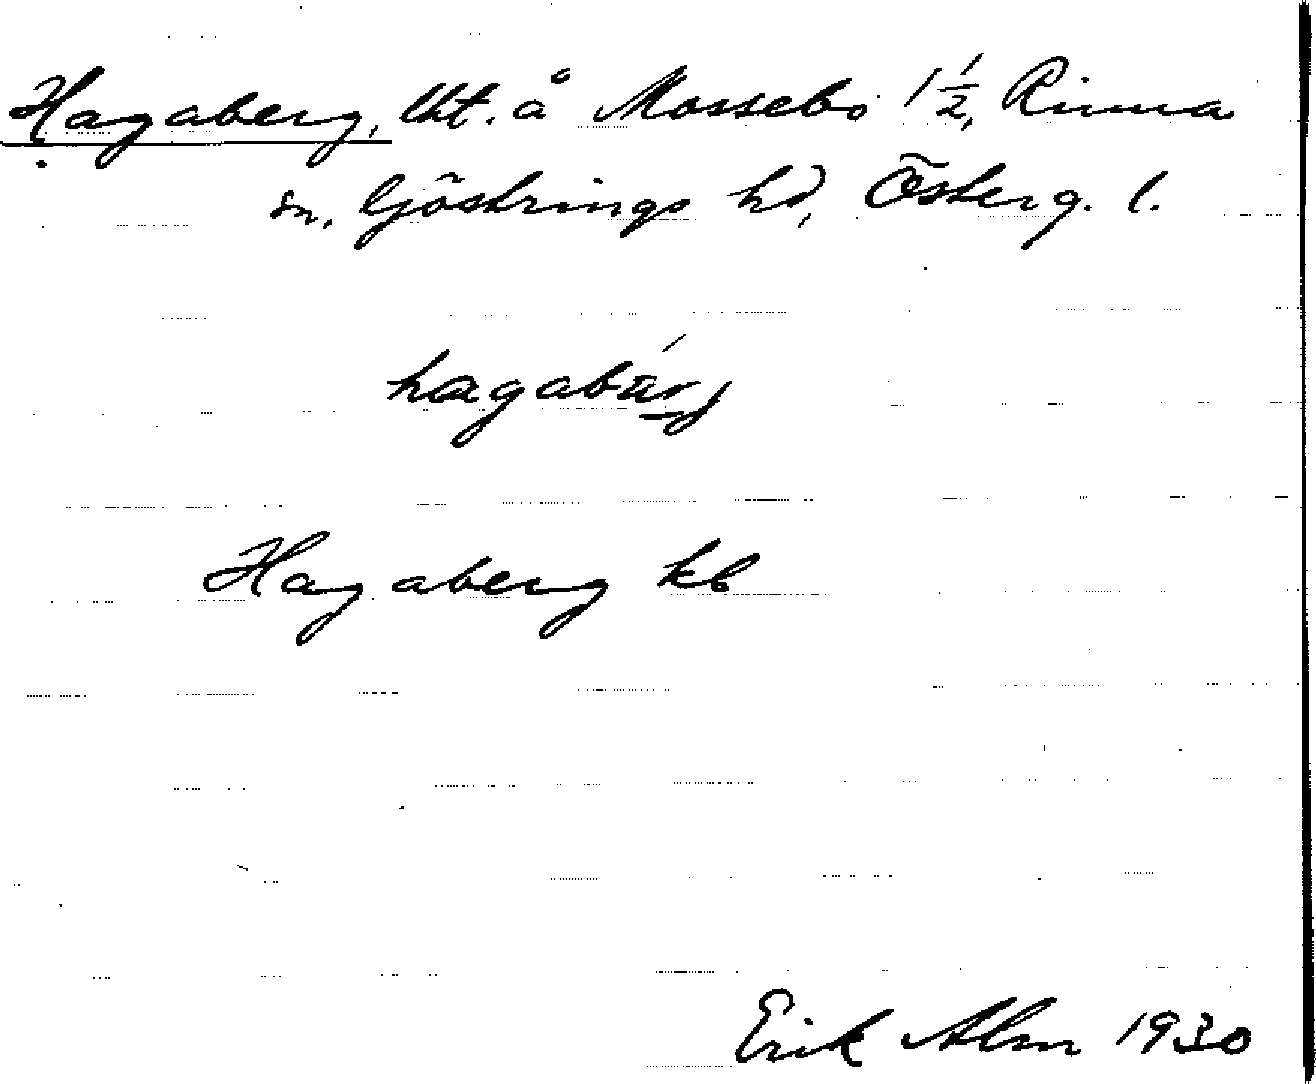 Hagaberg, lht. å Mossebo 1 1/2, Rinna
sn. Göstrings hd, Österg. l.
hagabärj
Hagaberg kb
Erik Alm 1930